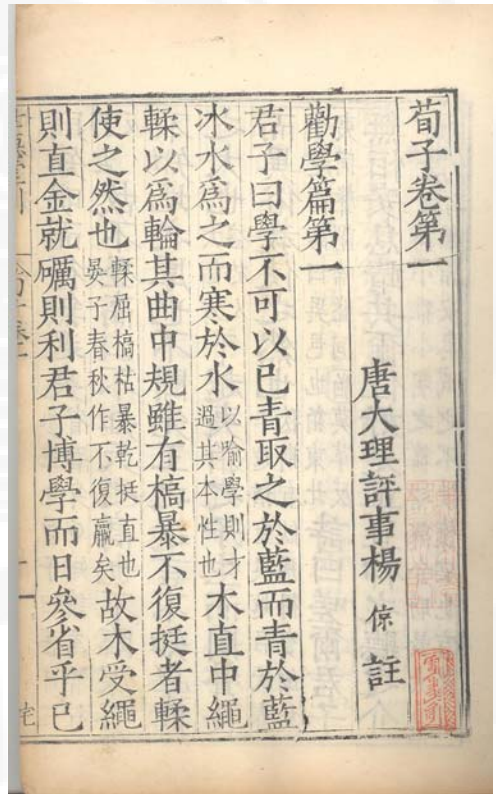 荀子卷第一
唐大理評事楊 倞 註
勸學篇第一
君子曰學不可以已青取之於藍而青於藍
冰水爲之而寒於水以喻學則才過其本性也木直中繩
輮以爲輪其曲中規雖有槁暴不復挺者輮
使之然也輮屈槁枯暴乾挺直也晏子春秋作不復贏矣故木受繩
則直金就礪則利君子博學而日參省乎己